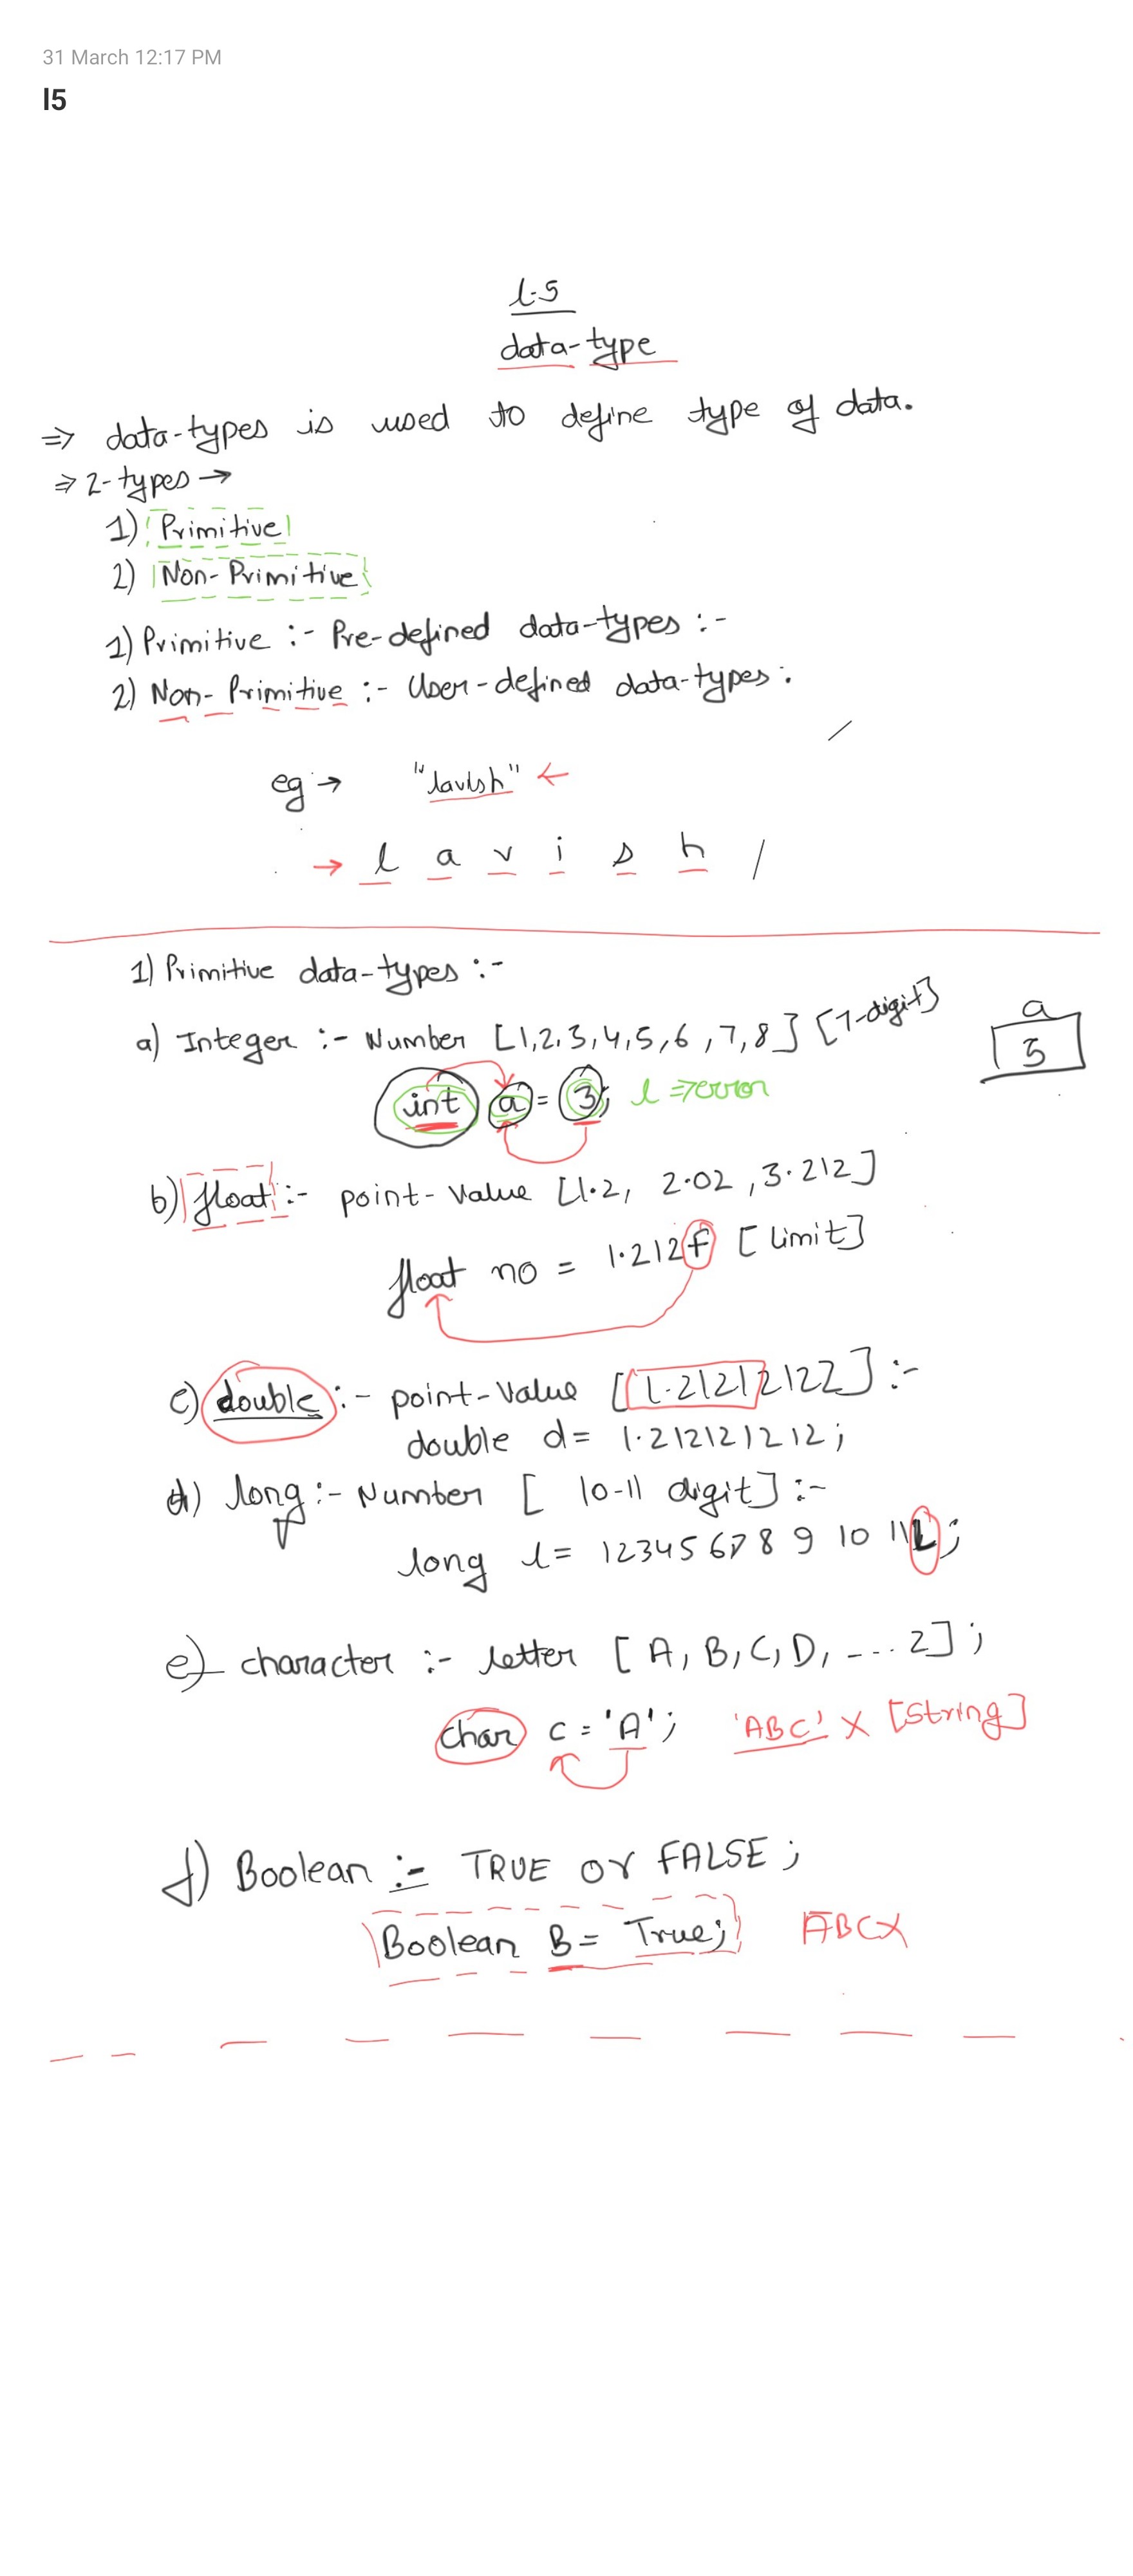 31 March 12:17 PM
l5
l-5
data-type
⇒ data-types is used to define type of data.
⇒ 2-types →
1) Primitive
2) Non-Primitive
1) Primitive :- Pre-defined data-types :-
2) Non-Primitive :- User-defined data-types :
eg → "lavish" ←
→ l a v i s h /
1) Primitive data-types :-
a) Integer :- Number [1,2,3,4,5,6,7,8] [7-digit]
a
3
int a = 3; l ⇒ error
b) float :- point-value [1.2, 2.02, 3.212]
float no = 1.212f [limit]
c) double :- point-value [1.21212122] :-
double d = 1.212121212;
d) long :- Number [10-11 digit] :-
long l = 1234567891011L;
e) character :- letter [A, B, C, D, --.. Z];
char c = 'A'; 'ABC' X [String]
f) Boolean :- TRUE or FALSE;
Boolean B = True; ABC X